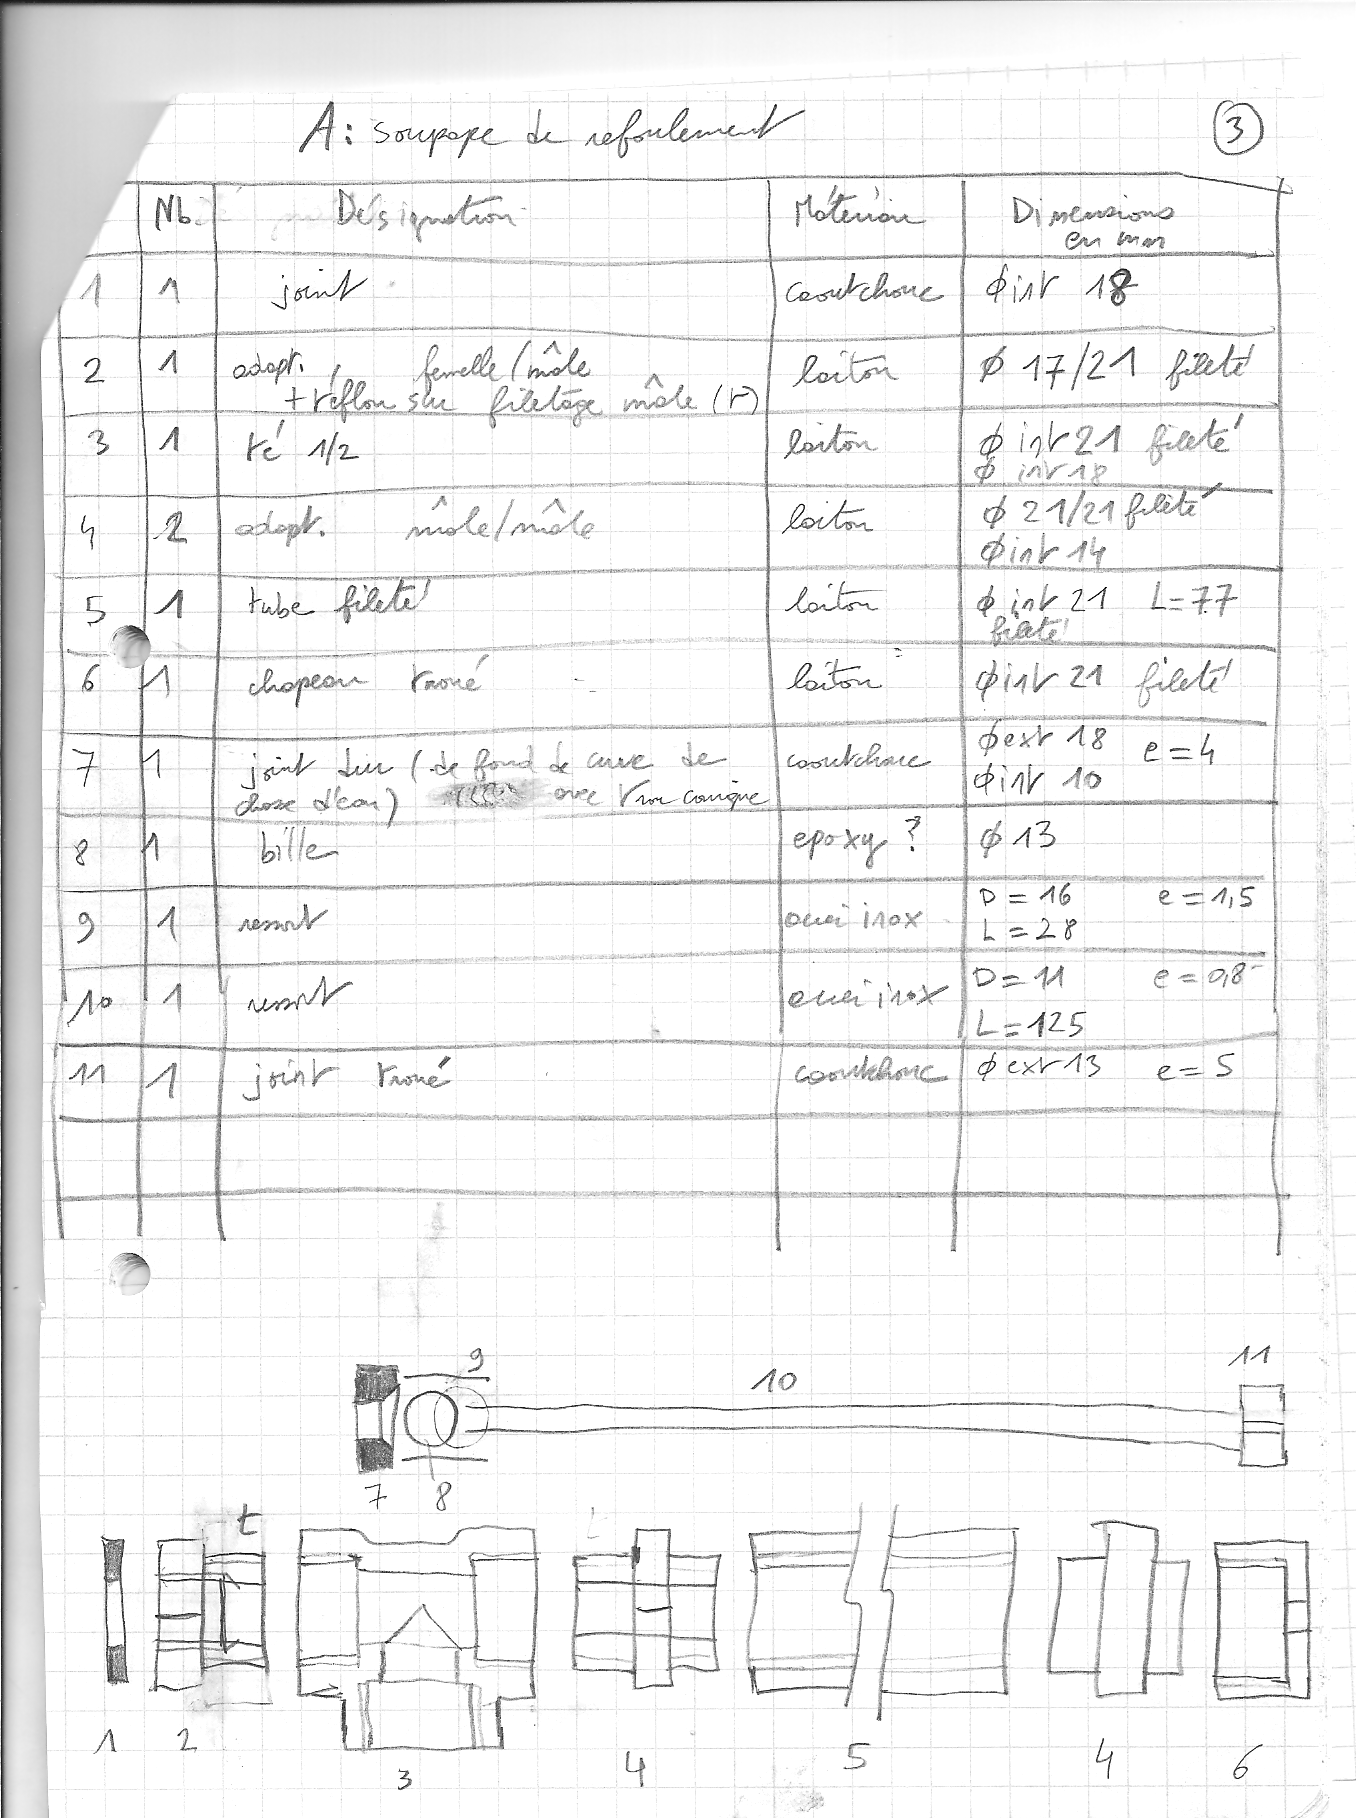 A: soupape de refoulement
3
Nb Désignation Matériau Dimensions
en mm
1 1 joint caoutchouc ϕ int 18
2 1 adapt. femelle/mâle laiton ϕ 17/21 fileté
+ téflon sur filetage mâle (t)
3 1 té 1/2 laiton ϕ int 21 fileté
ϕ int 18
4 2 adapt. mâle/mâle laiton ϕ 21/21 fileté
ϕ int 14
5 1 tube fileté laiton ϕ int 21 L=77
fileté
6 1 chapeau troué laiton ϕ int 21 fileté
7 1 joint dur (de fond de cuve de caoutchouc ϕ ext 18 e=4
chasse d'eau) avec trou conique ϕ int 10
8 1 bille epoxy ? ϕ 13
9 1 ressort acier inox D=16 e=1,5
L=28
10 1 ressort acier inox D=11 e=0,8
L=125
11 1 joint troué caoutchouc ϕ ext 13 e=5
9 10 11
7 8
t
1 2 3 4 5 4 6